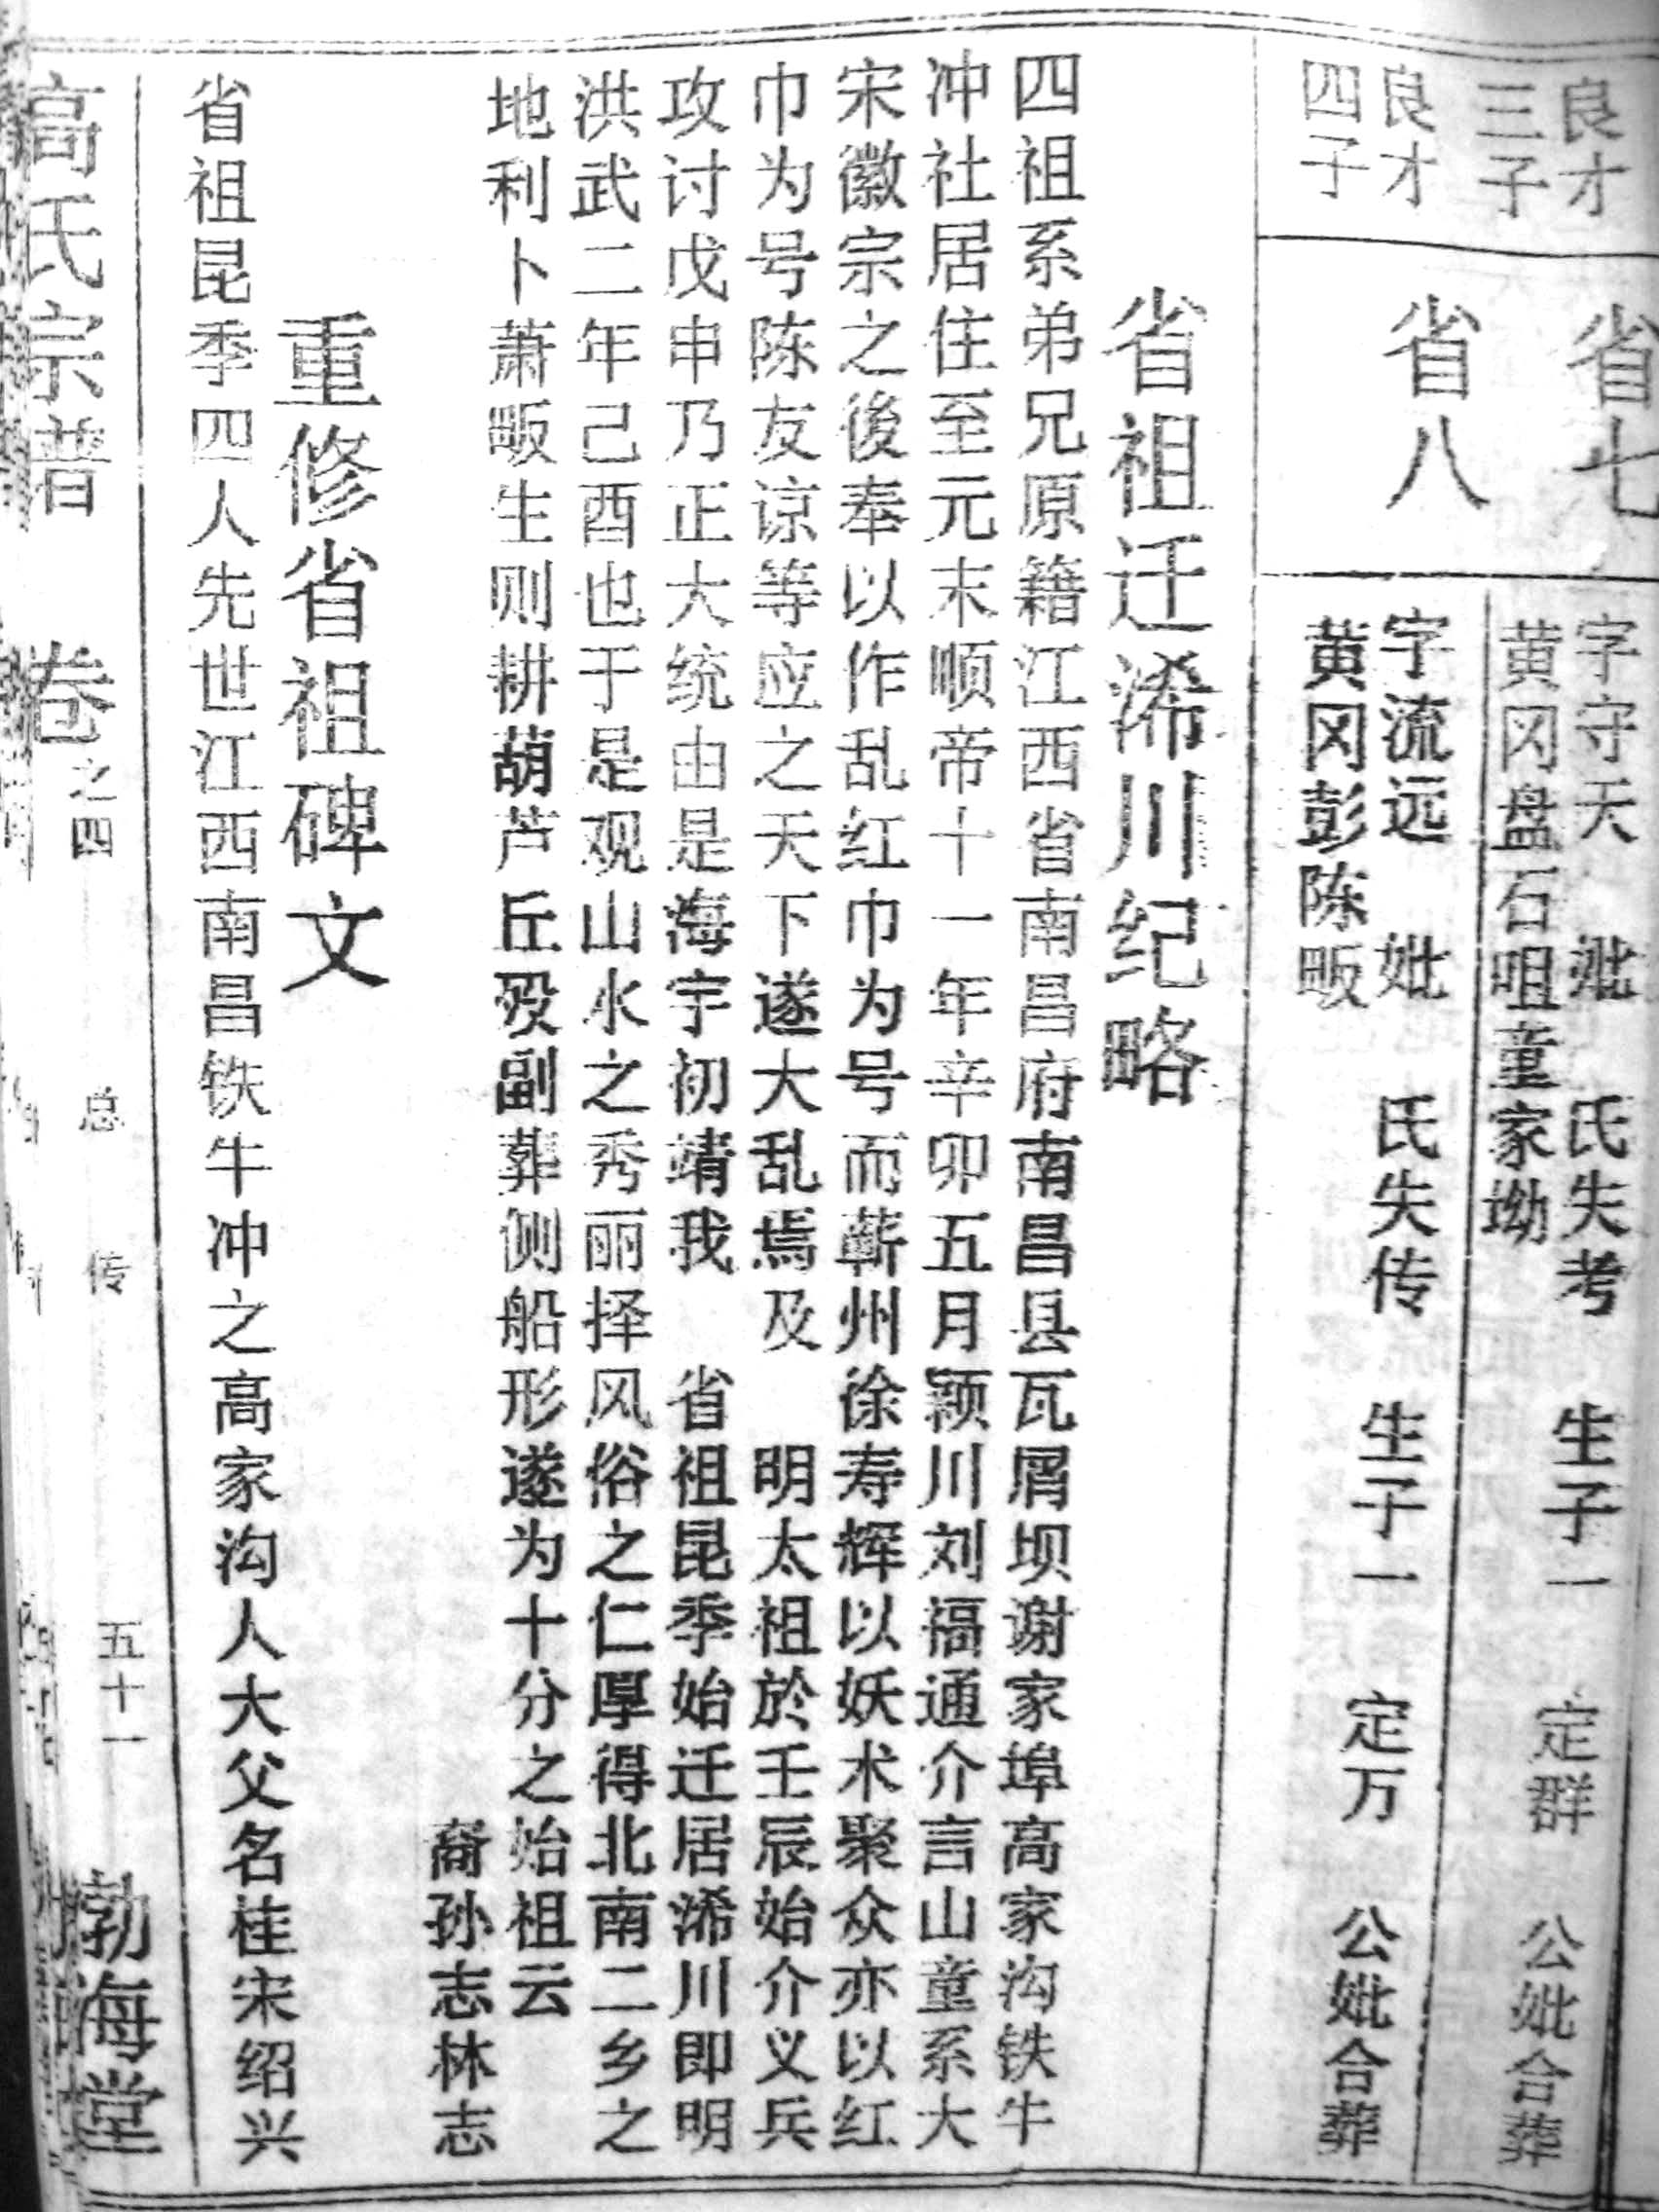 良才
三子
省七
字守天 妣 氏失考 生子一 定群 公妣合葬
黄冈盘石咀童家坳
良才
四子
省八
字流远 妣 氏失传 生子一 定万 公妣合葬
黄冈彭陈畈
省祖迁浠川纪略
四祖系弟兄原籍江西省南昌府南昌县瓦屑坝谢家埠高家沟铁牛
冲社居住至元末顺帝十一年辛卯五月颖川刘福通介言山童系大
宋徽宗之後奉以作乱红巾为号而蕲州徐寿辉以妖术聚众亦以红
巾为号陈友谅等应之天下遂大乱焉及 明太祖於壬辰始介义兵
攻讨戊申乃正大统由是海宇初靖我 省祖昆季始迁居浠川即明
洪武二年己酉也于是观山水之秀丽择风俗之仁厚得北南二乡之
地利卜萧畈生则耕葫芦丘殁副葬侧船形遂为十分之始祖云
裔孙志林志
重修省祖碑文
省祖昆季四人先世江西南昌铁牛冲之高家沟人大父名桂宋绍兴
高氏宗普 卷之四 总传 五十一 勃海堂